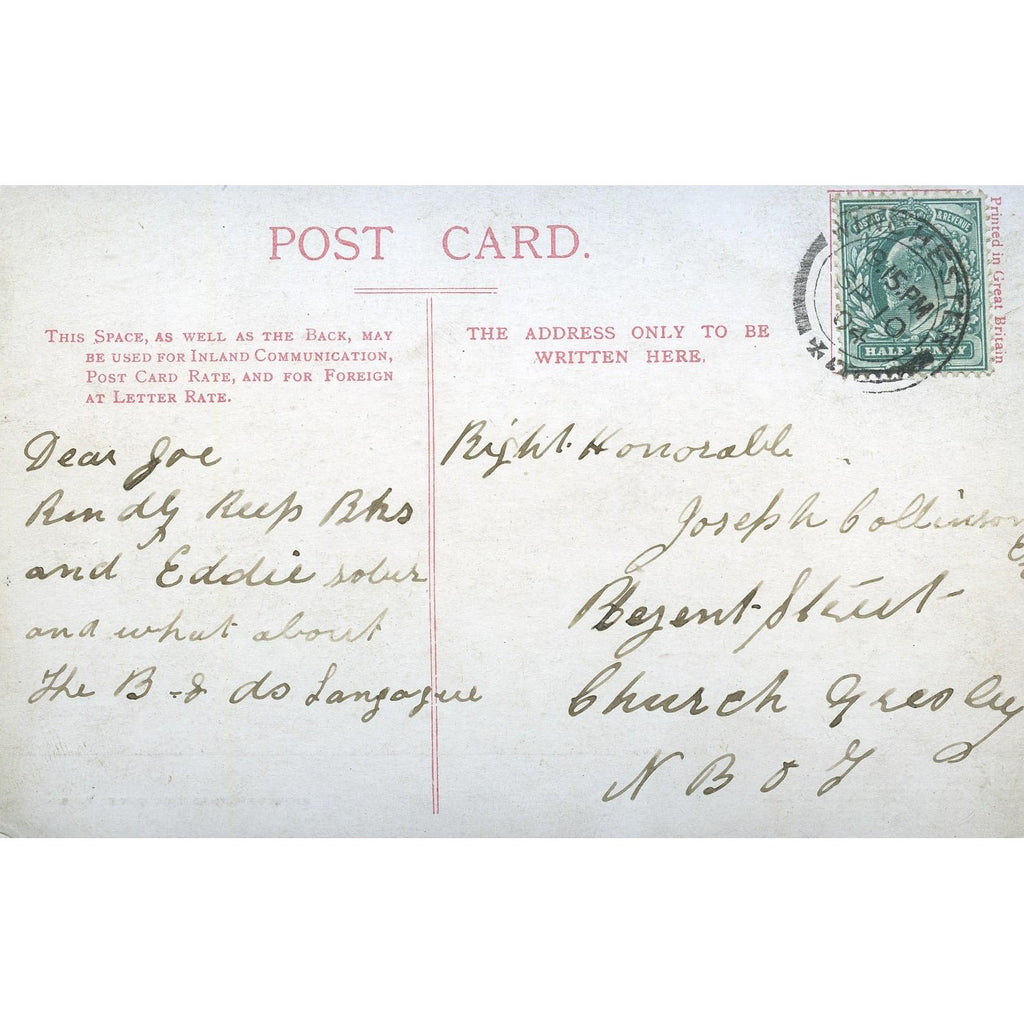 POST CARD.
THIS SPACE, AS WELL AS THE BACK, MAY
BE USED FOR INLAND COMMUNICATION,
POST CARD RATE, AND FOR FOREIGN
AT LETTER RATE.
THE ADDRESS ONLY TO BE
WRITTEN HERE.
Printed in Great Britain
POSTAGE & REVENUE
HALF PENNY
9.15 PM
10
04
Dear Joe
Kindly Keep
and Eddie sober
and what about
The B & do Langague
Right Honorable
Joseph Collinson
Regent Street
Church Gresley
N B & J